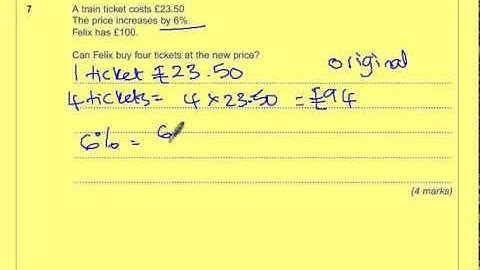 7 A train ticket costs £23.50
The price increases by 6%.
Felix has £100.
Can Felix buy four tickets at the new price?
1 ticket £23.50 original
4 tickets = 4 × 23.50 = £94
6% = 6
(4 marks)